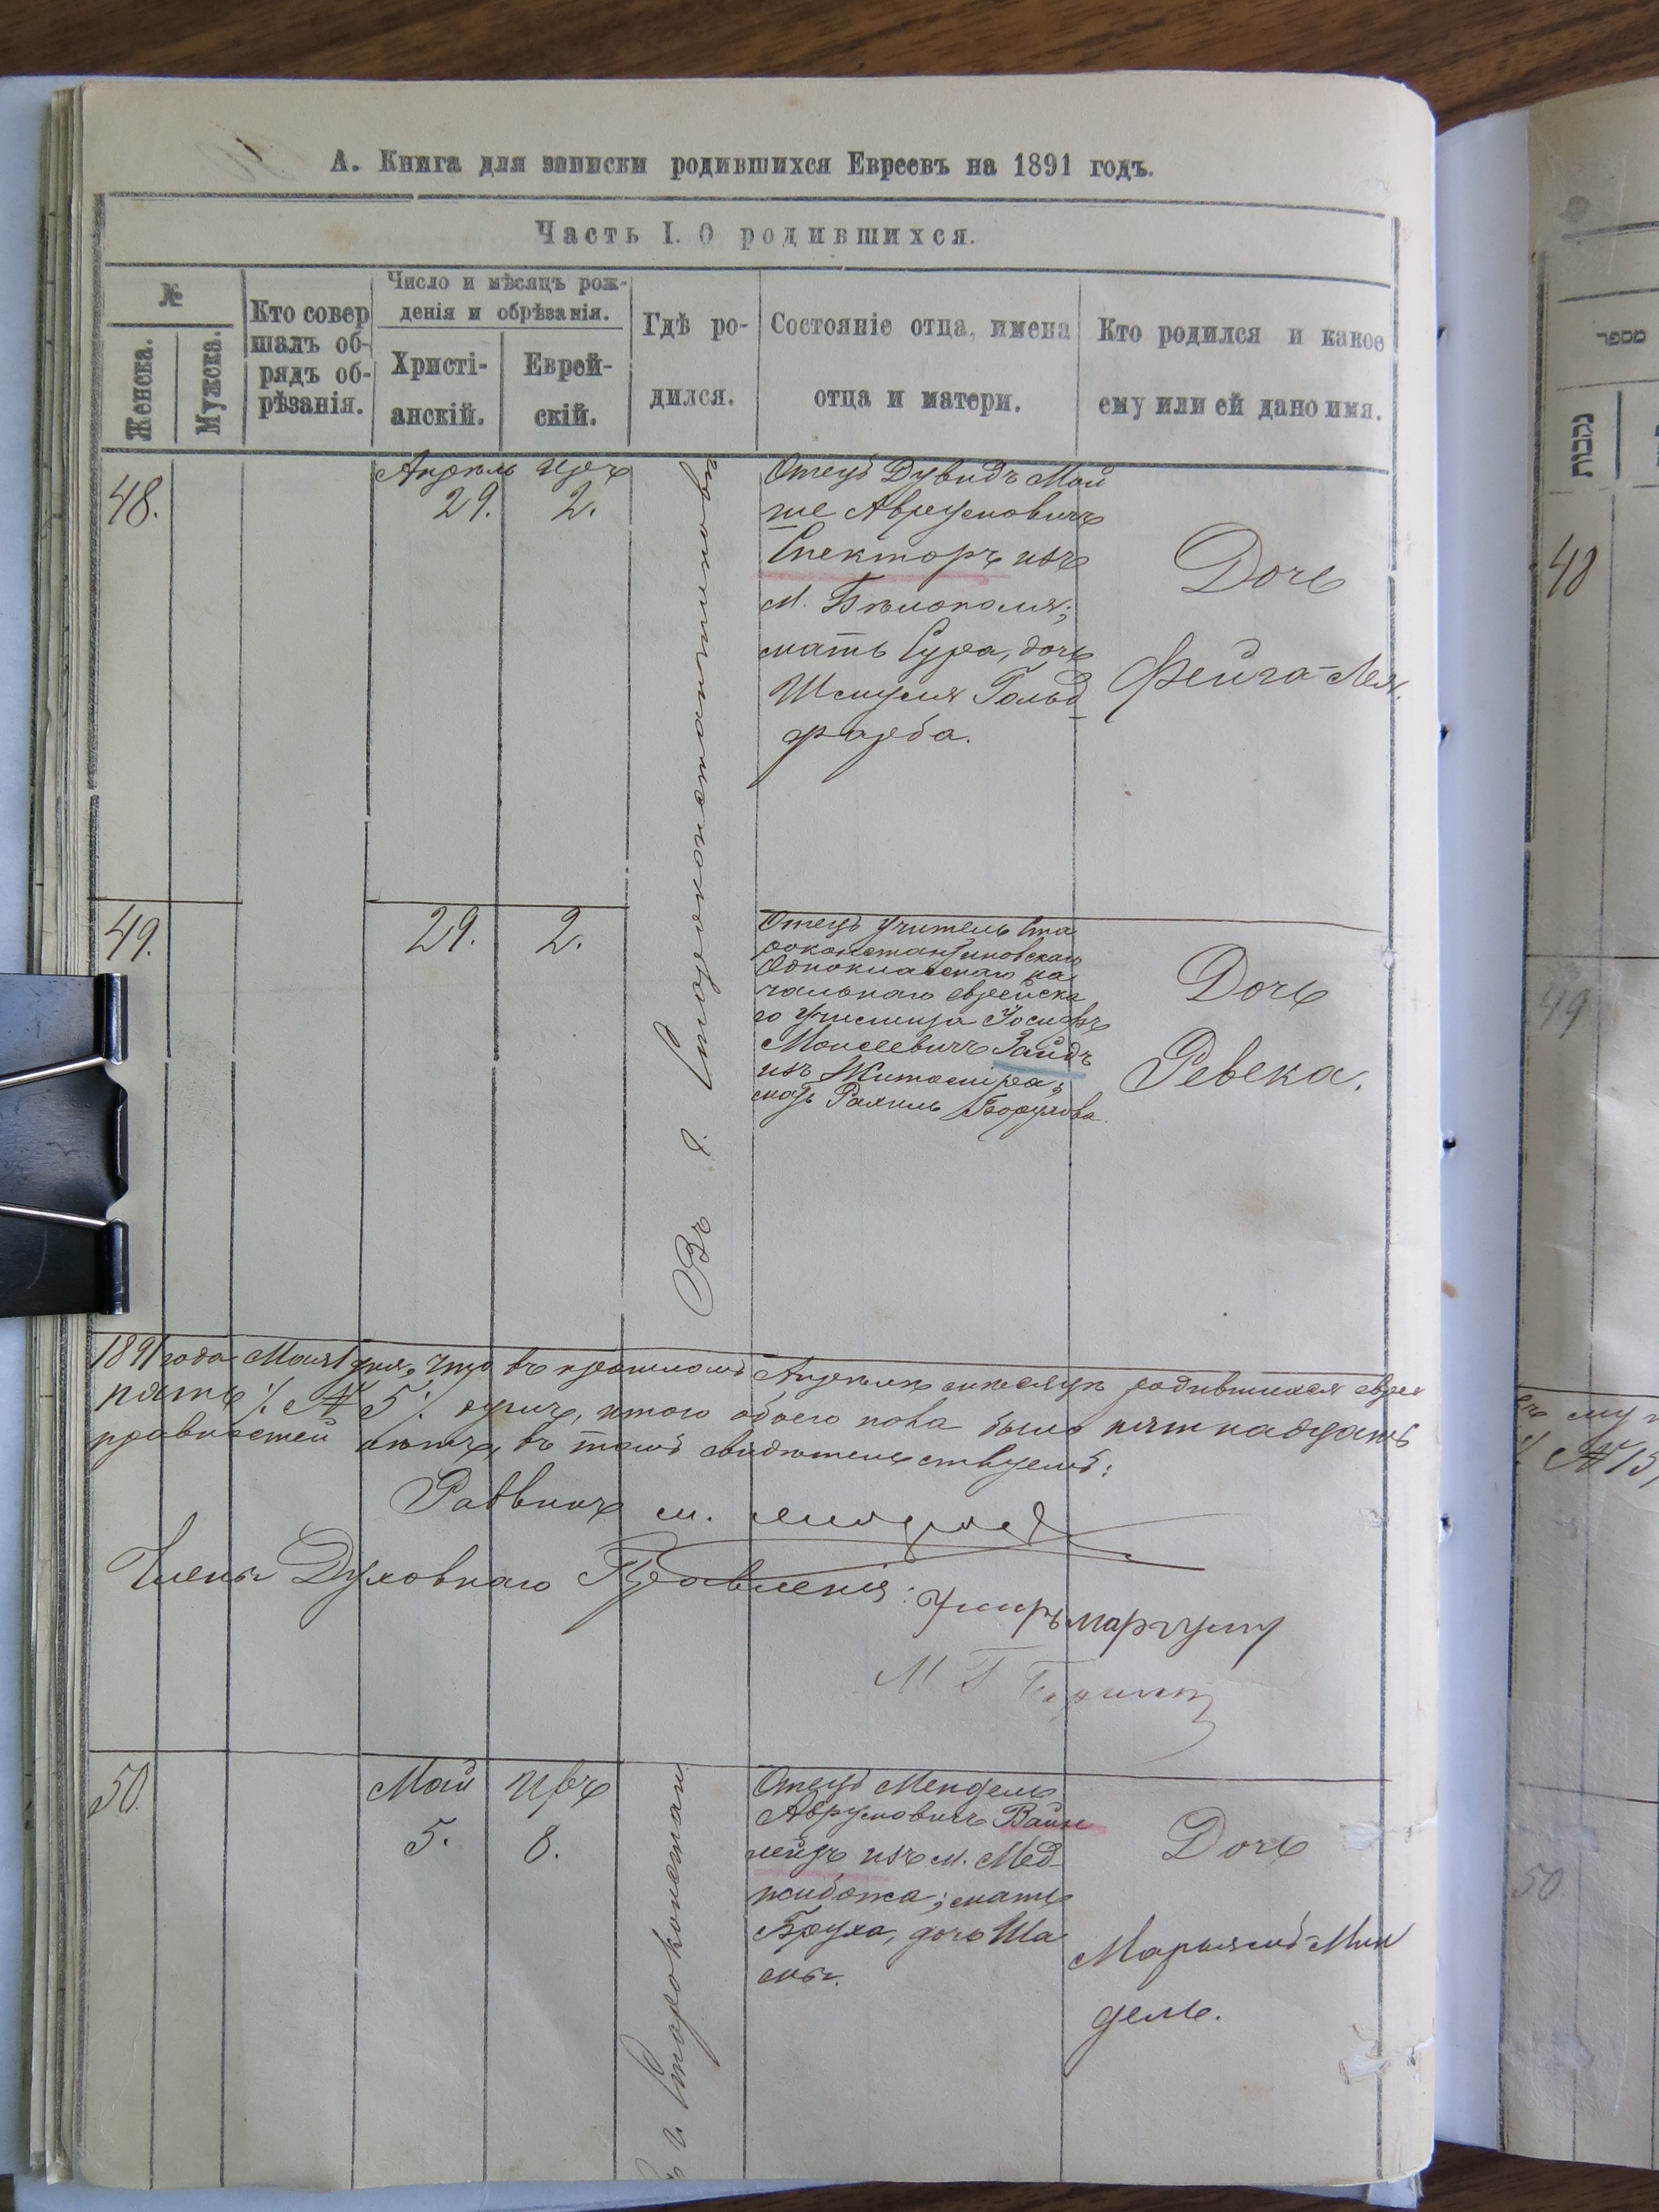 А. Книга для записки родившихся Евреевъ на 1891 годъ.
Часть I. О родившихся.
№
Женска.
Мужска.
Кто совер
шалъ об-
рядъ об-
рѣзанія.
Число и мѣсяцъ рож-
денія и обрѣзанія.
Христі-
анскій.
Еврей-
скій.
Гдѣ ро-
дился.
Состояніе отца, имена
отца и матери.
Кто родился и какое
ему или ей дано имя.
48.
Апрѣль
29.
2.
Въ г. Староконстантиновѣ
Отецъ Дувидъ Мой
ше Аврумовичъ
Спекторъ изъ
м. Бѣлополя;
мать Сура, дочь
Шмуля Гольд-
фарба.
Дочь
Фейга-Лея.
49.
29.
2.
Отецъ учитель Ста
роконстантиновскаго
Одноклаcснаго на
чальнаго еврейска
го училища Іосифъ
Моисеевичъ Зайдъ
изъ Житомира;
мать Рахиль Борухова.
Дочь
Ревека.
1891 года Мая 1 дня, что въ прошломъ Апрѣлѣ мѣсяцѣ родившихся евреи
пять /: № 5 :/ душъ, итого обоего пола было пятнадцать
въ томъ свидѣтельствуемъ:
Раввинъ м.
Члены Духовнаго Правленія:
М Г
50.
Май
5.
8.
Староконстан
Отецъ Мендель
Аврумовичъ Вайн
изъ м. Мед-
жибожа; мать
Бруха, дочь Ша
мы.
Дочь
Марьямъ-Мин
дель.
נקבות
מספר
48
49
50